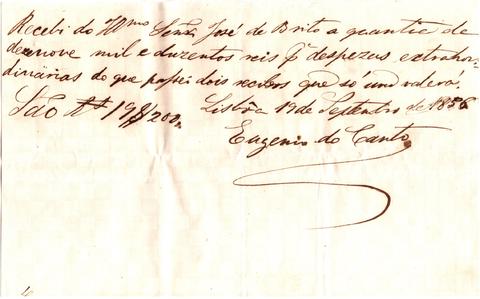 Recebi do Illmo Senr José de Brito a quantia de
dezenove mil e duzentos reis pa despezas extrahor-
dinárias do que passei dois recibos que só um valerá.
São Rs 19$200.
Lisbôa 19 de Septembro de 1856
Eugenio do Canto